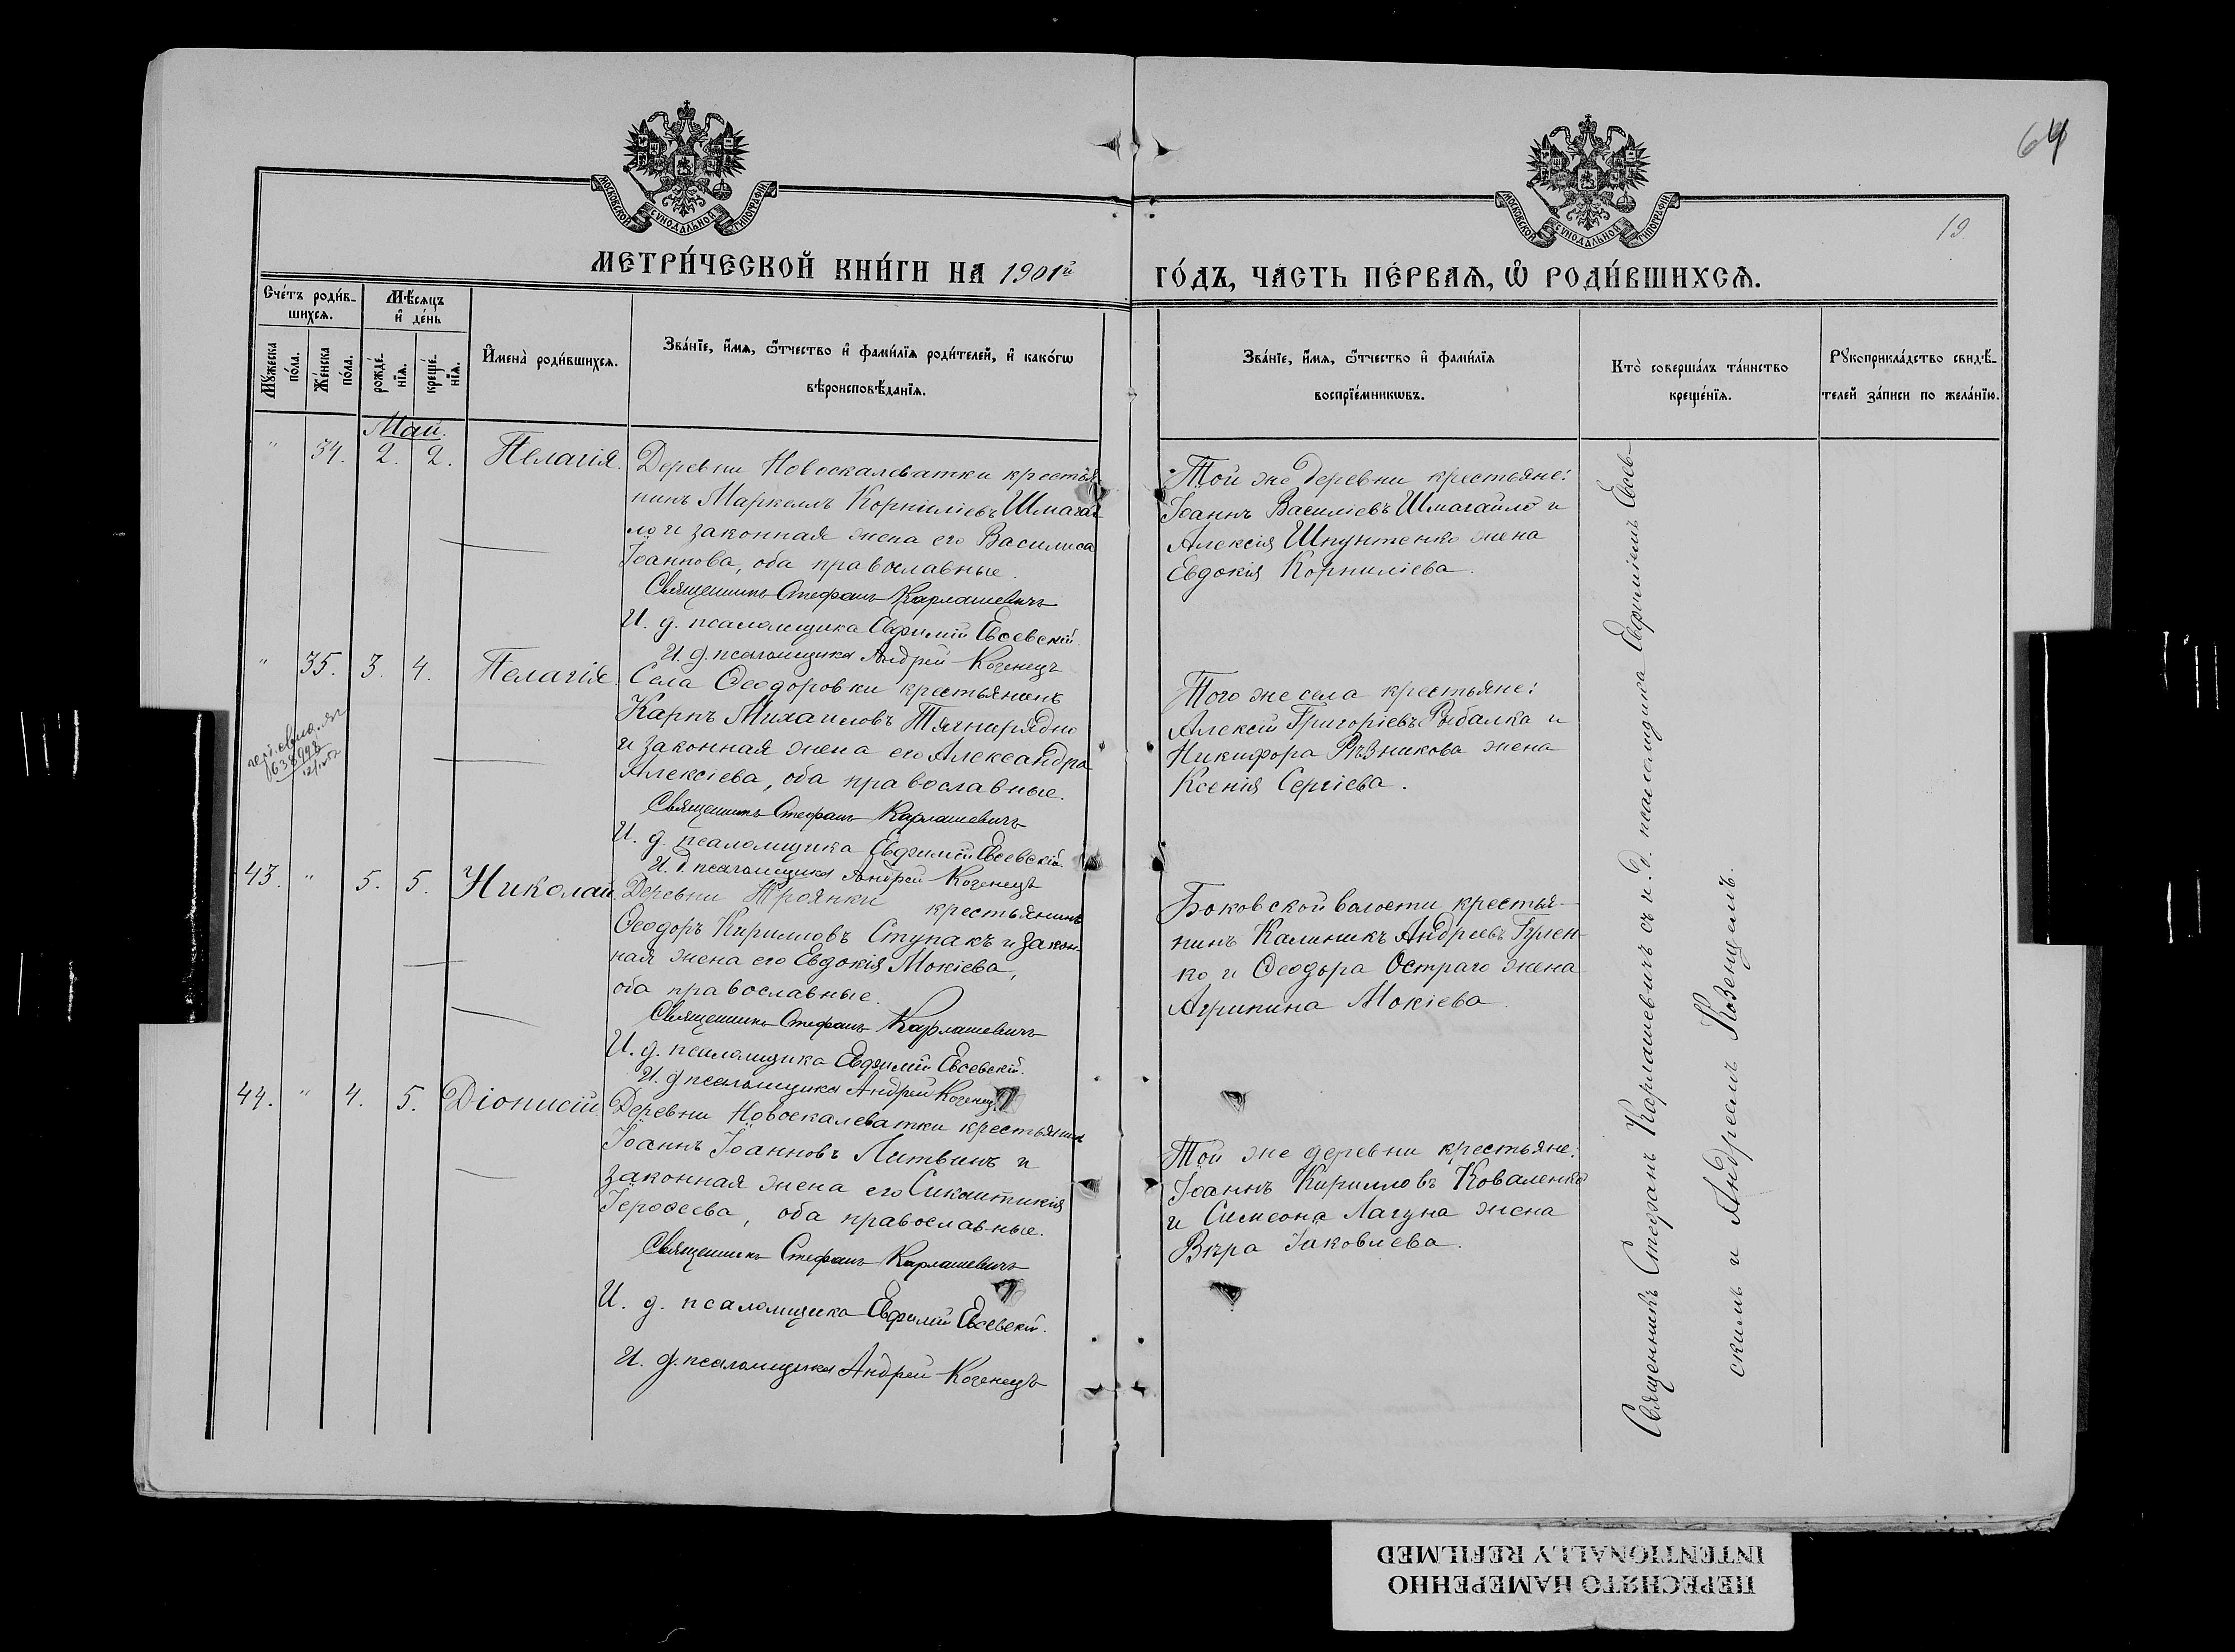 64
19
МОСКОВСКОЙ СѴНОДАЛЬНОЙ ТИПОГРАФІИ
МОСКОВСКОЙ СѴНОДАЛЬНОЙ ТИПОГРАФІИ
МЕТРИ́ЧЕСКОЙ КНИ́ГИ НА 1901й ГО́ДЪ, ЧА́СТЬ ПЕ́РВАѦ, Ѿ РОДИ́ВШИХСѦ.
Сче́тъ роди́в-
шихсѧ.
Мꙋ́жеска
по́ла.
Же́нска
по́ла.
Мѣ́сѧцъ
и҆ де́нь
рожде́-
нїѧ.
креще́-
нїѧ.
И҆мена̀ роди́вшихсѧ.
Зва́нїе, и҆́мѧ, ѻ҆́тчество и҆ фами́лїѧ роди́телей, и҆ како́гѡ
вѣроисповѣ́данїѧ.
Зва́нїе, и҆́мѧ, ѻ҆́тчество и҆ фами́лїѧ
воспрїе́мникѡвъ.
Кто̀ соверша́лъ та́инство
креще́нїѧ.
Рꙋкоприкла́дство свидѣ́-
телей за́писи по жела́нїю.
Май.
" 34. 2. 2. Пелагія.
Деревни Новоскалеватки крестья-
нинъ Маркеллъ Корниліевъ Шмагай-
ло и законная жена его Василиса
Іоаннова, оба православные.
Священникъ Стефанъ Карлашевичъ
И. д. псаломщика Евфимій Евсевскій.
И. д. псаломщика Андрей Козенецъ
Той же деревни крестьяне:
Іоаннъ Василіевъ Шмагайло и
Алексія Шпунтенко жена
Евдокія Корниліева.
" 35. 3. 4. Пелагія.
Села Ѳеодоровки крестьянинъ
Карпъ Михаиловъ Тягнирядно
и законная жена его Александра
Алексіева, оба православные.
Священникъ Стефанъ Карлашевичъ
И. д. псаломщика Евфимій Евсевскій.
И. д. псаломщика Андрей Козенецъ
Того же села крестьяне:
Алексій Григоріевъ Рыбалка и
Никифора Рѣзникова жена
Ксенія Сергіева.
43. " 5. 5. Николай.
Деревни Троянки крестьянинъ
Ѳеодоръ Кирилловъ Ступакъ и закон-
ная жена его Евдокія Мокіева,
оба православные.
Священникъ Стефанъ Карлашевичъ
И. д. псаломщика Евфимій Евсевскій.
И. д. псаломщика Андрей Козенецъ
Боковской волости крестья-
нинъ Калиникъ Андреевъ Гулен-
ко и Ѳеодора Остраго жена
Агрипина Мокіева.
44. " 4. 5. Діонисій
Деревни Новоскалеватки крестьянинъ
Іоаннъ Іоанновъ Литвинъ и
законная жена его Сикლитикія
Іероѳеева, оба православные.
Священникъ Стефанъ Карлашевичъ
И. д. псаломщика Евфимій Евсевскій.
И. д. псаломщика Андрей Козенецъ
Той же деревни крестьяне:
Іоаннъ Кирилловъ Коваленко
и Симеона Лагуна жена
Вѣра Іаковлева.
Священникъ Стефанъ Карлашевичъ съ и. д. псаломщика Евфиміемъ Евсев-
скимъ и Андреемъ Козенцемъ.
ПЕРЕСНЯТО НАМЕРЕННО
INTENTIONALLY REFILMED